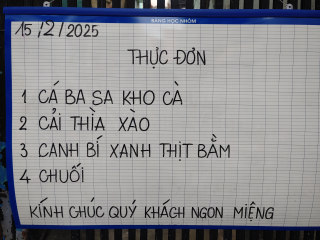 BẢNG HỌC NHÓM
15/2/2025
THỰC ĐƠN
1 CÁ BA SA KHO CÀ
2 CẢI THÌA XÀO
3 CANH BÍ XANH THỊT BẰM
4 CHUỐI
KÍNH CHÚC QUÝ KHÁCH NGON MIỆNG